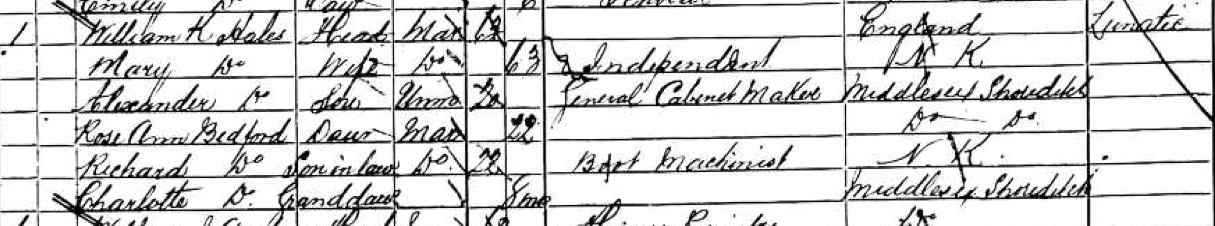 Emily Do
1 William K Hales Head Mar 63 England Lunatic
Mary Do Wife Do 63 Independent N. K.
Alexander Do Son Unm 20 General Cabinet Maker Middlesex Shoreditch
Rose Ann Bedford Daur Mar 22 Do Do
Richard Do Son in law Do 22 Boot Machinist N. K.
Charlotte Do. Granddaur 8mo Middlesex Shoreditch
Do